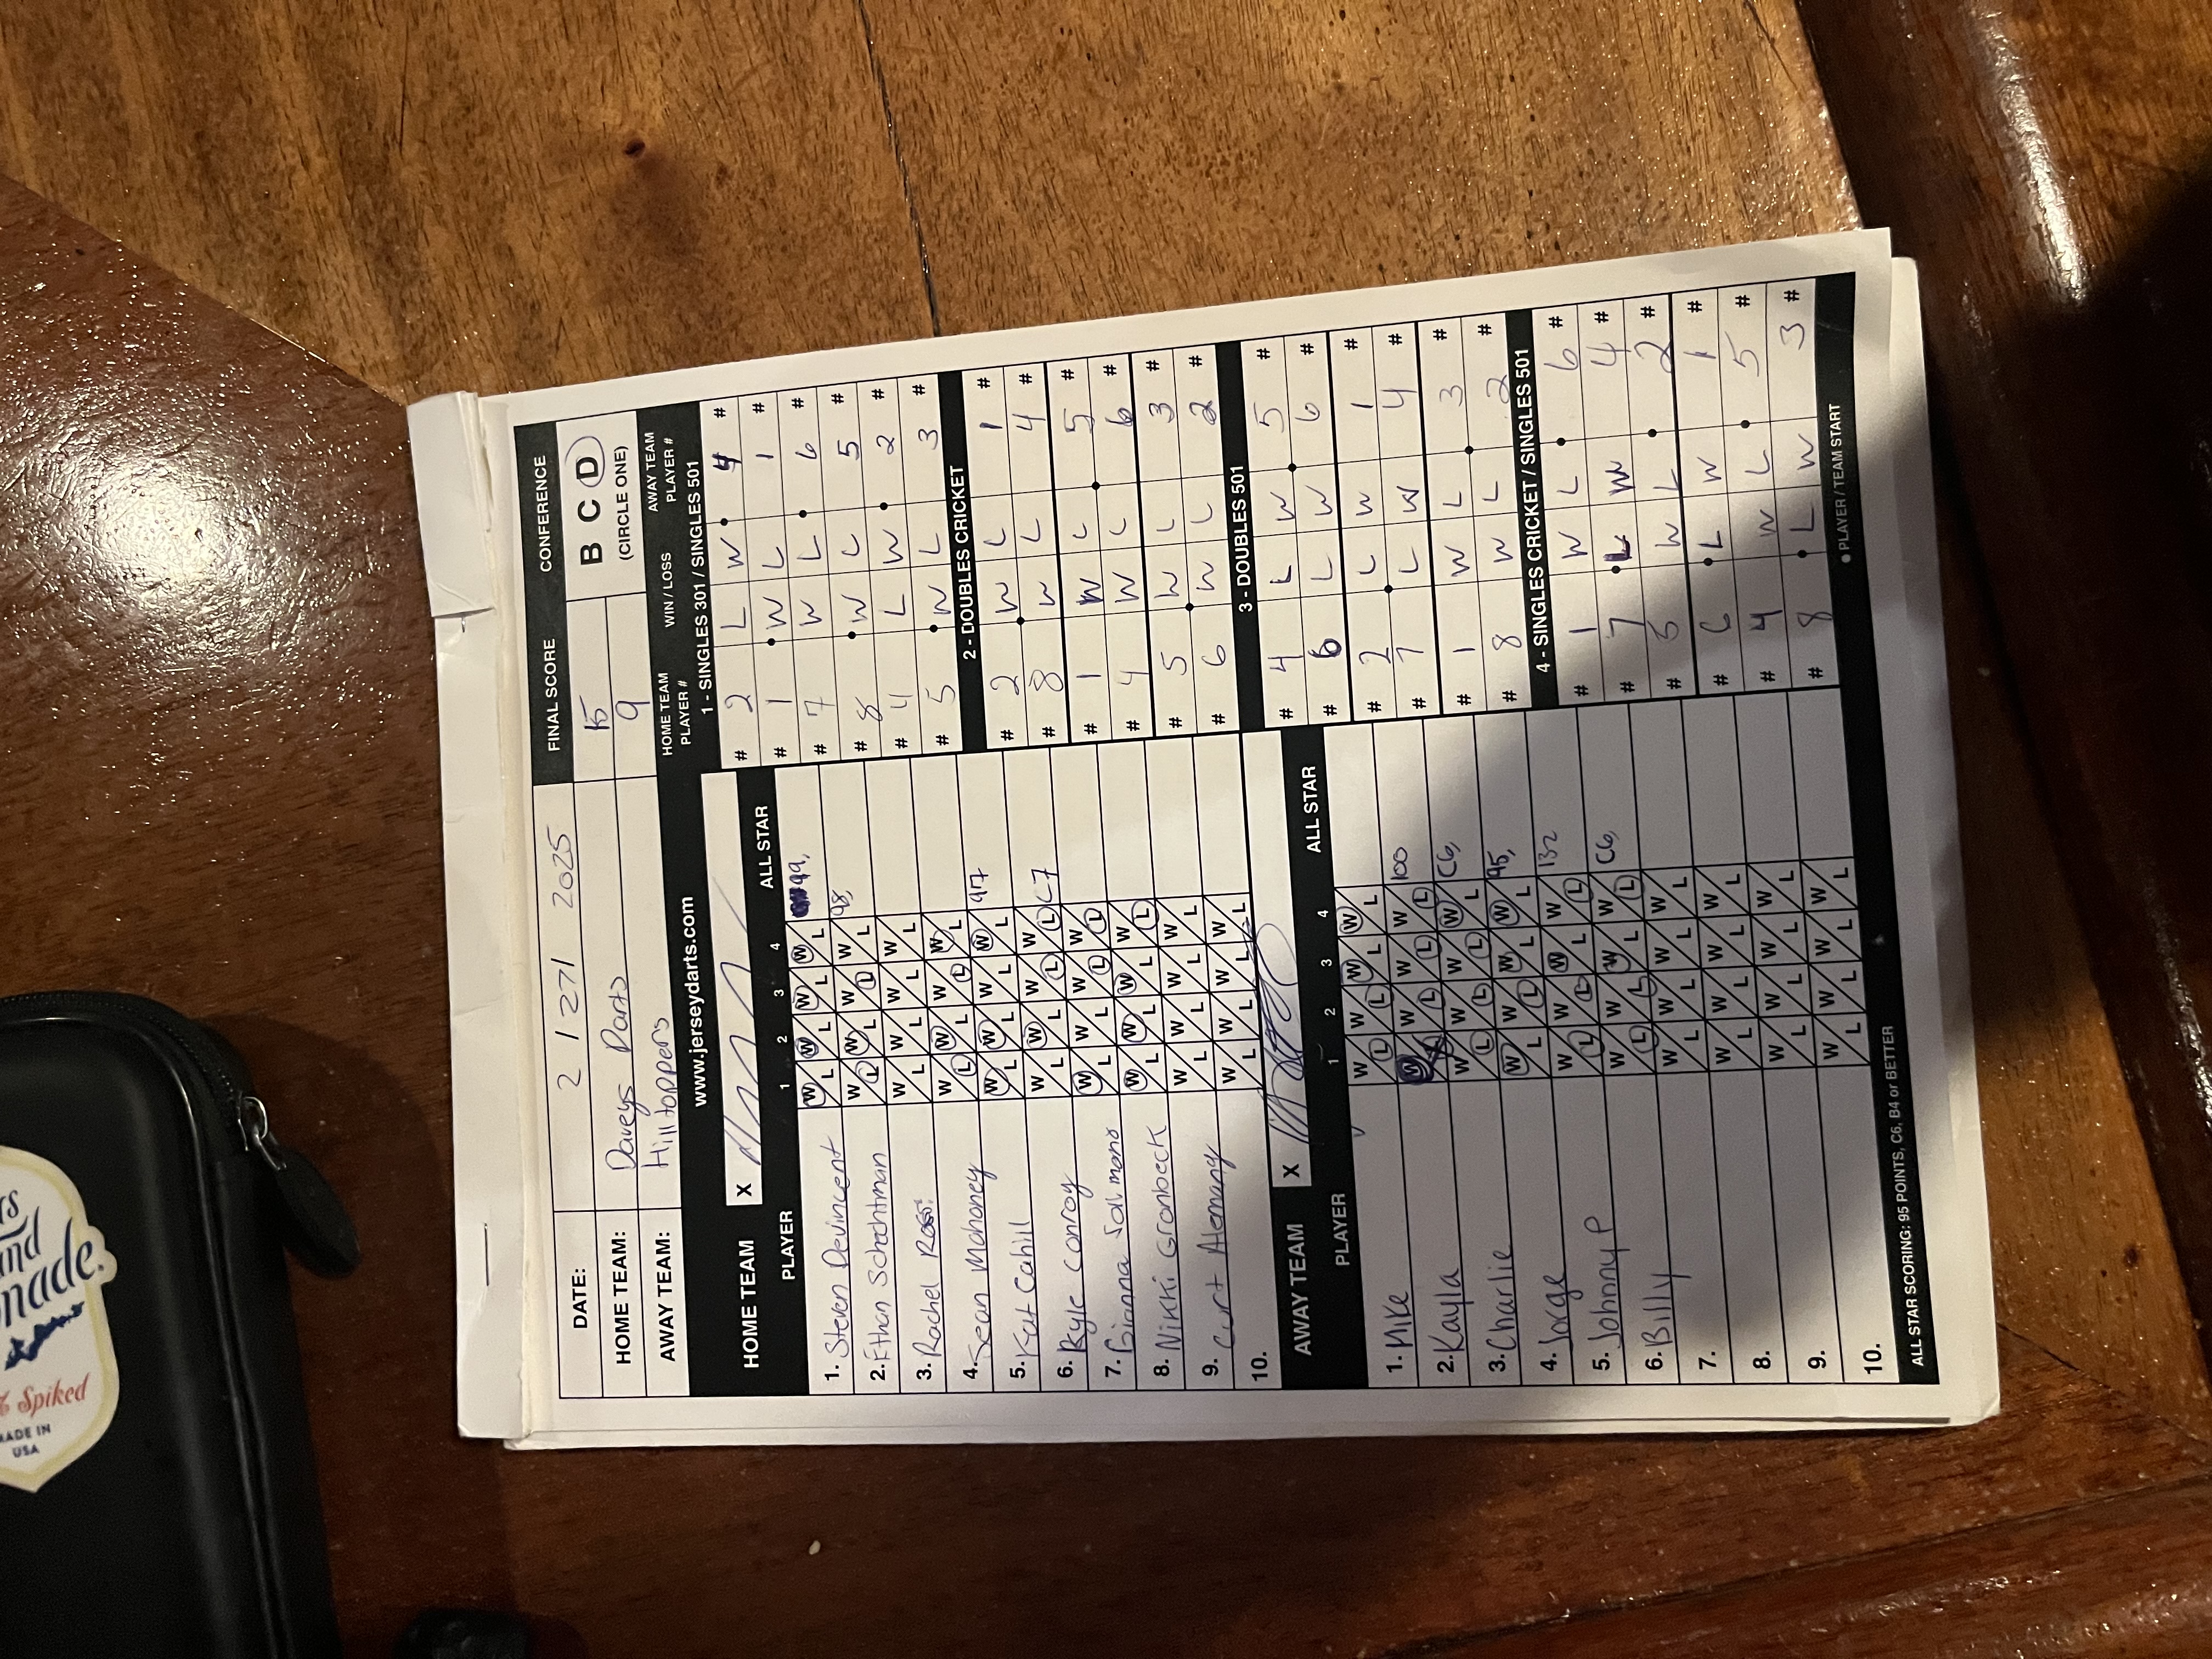 DATE: 2 / 27 / 2025 FINAL SCORE CONFERENCE
HOME TEAM: Daveys Darts 15 B C D
AWAY TEAM: Hilltoppers 9 (CIRCLE ONE)
www.jerseydarts.com
HOME TEAM X
PLAYER 1 2 3 4 ALL STAR
1. Steven Devincent W L W L W L W L 99,
2. Ethan Schechtman W L W L W L W L 98,
3. Rachel W L W L W L W L
4. Sean Mahoney W L W L W L W L
5. Kat Cahill W L W L W L W L 97
6. Kyle Conroy W L W L W L W L C7
7. Gianna W L W L W L W L
8. Nikki Gronbeck W L W L W L W L
9. Curt Alemany W L W L W L W L
10. W L W L W L W L
AWAY TEAM X
PLAYER 1 2 3 4 ALL STAR
1. Mike W L W L W L W L 100
2. Kayla W L W L W L W L C6,
3. Charlie W L W L W L W L 95,
4. Jorge W L W L W L W L 132
5. Johnny P W L W L W L W L C6,
6. Billy W L W L W L W L
7. W L W L W L W L
8. W L W L W L W L
9. W L W L W L W L
10.
ALL STAR SCORING: 95 POINTS, C6, B4 or BETTER
HOME TEAM PLAYER # WIN / LOSS AWAY TEAM PLAYER #
1 - SINGLES 301 / SINGLES 501
# 2 L W 4 #
# 1 W L 1 #
# 7 W L 6 #
# 8 W L 5 #
# 4 L W 2 #
# 5 W L 3 #
2 - DOUBLES CRICKET
# 2 W L 1 #
# 8 W L 4 #
# 1 W L 5 #
# 4 W L 6 #
# 5 W L 3 #
# 6 W L 2 #
3 - DOUBLES 501
# 4 L W 5 #
# 6 L W 6 #
# 2 L W 1 #
# 7 L W 4 #
# 1 W L 3 #
# 8 W L 2 #
4 - SINGLES CRICKET / SINGLES 501
# 1 W L 6 #
# 7 L W 4 #
# 5 W L 2 #
# 6 L W 1 #
# 4 W L 5 #
# 8 L W 3 #
● PLAYER / TEAM START
Spiked
MADE IN
USA